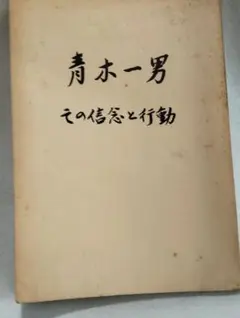 青木一男
その信念と行動